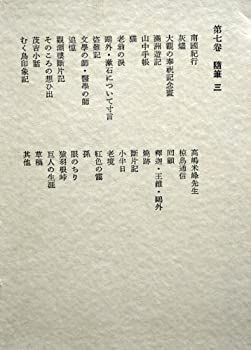 第七卷 隨筆 三
南國紀行
灰燼
大觀の奉祝記念畫
滿洲遊記
山中手帳
猫
老爺の淚
鷗外・漱石について寸言
盜難記
文學の師・醫學の師
追憶
觀潮樓斷片記
そのころの想ひ出
茂吉小話
むく鳥印象記
高嶋米峰先生
椋鳥通信
回顧
釋迦・王維・鷗外
燒跡
斷片記
小半日
老境
紅色の靄
孫
眼のちり
猿羽根峠
巨人の生涯
草稿
其他